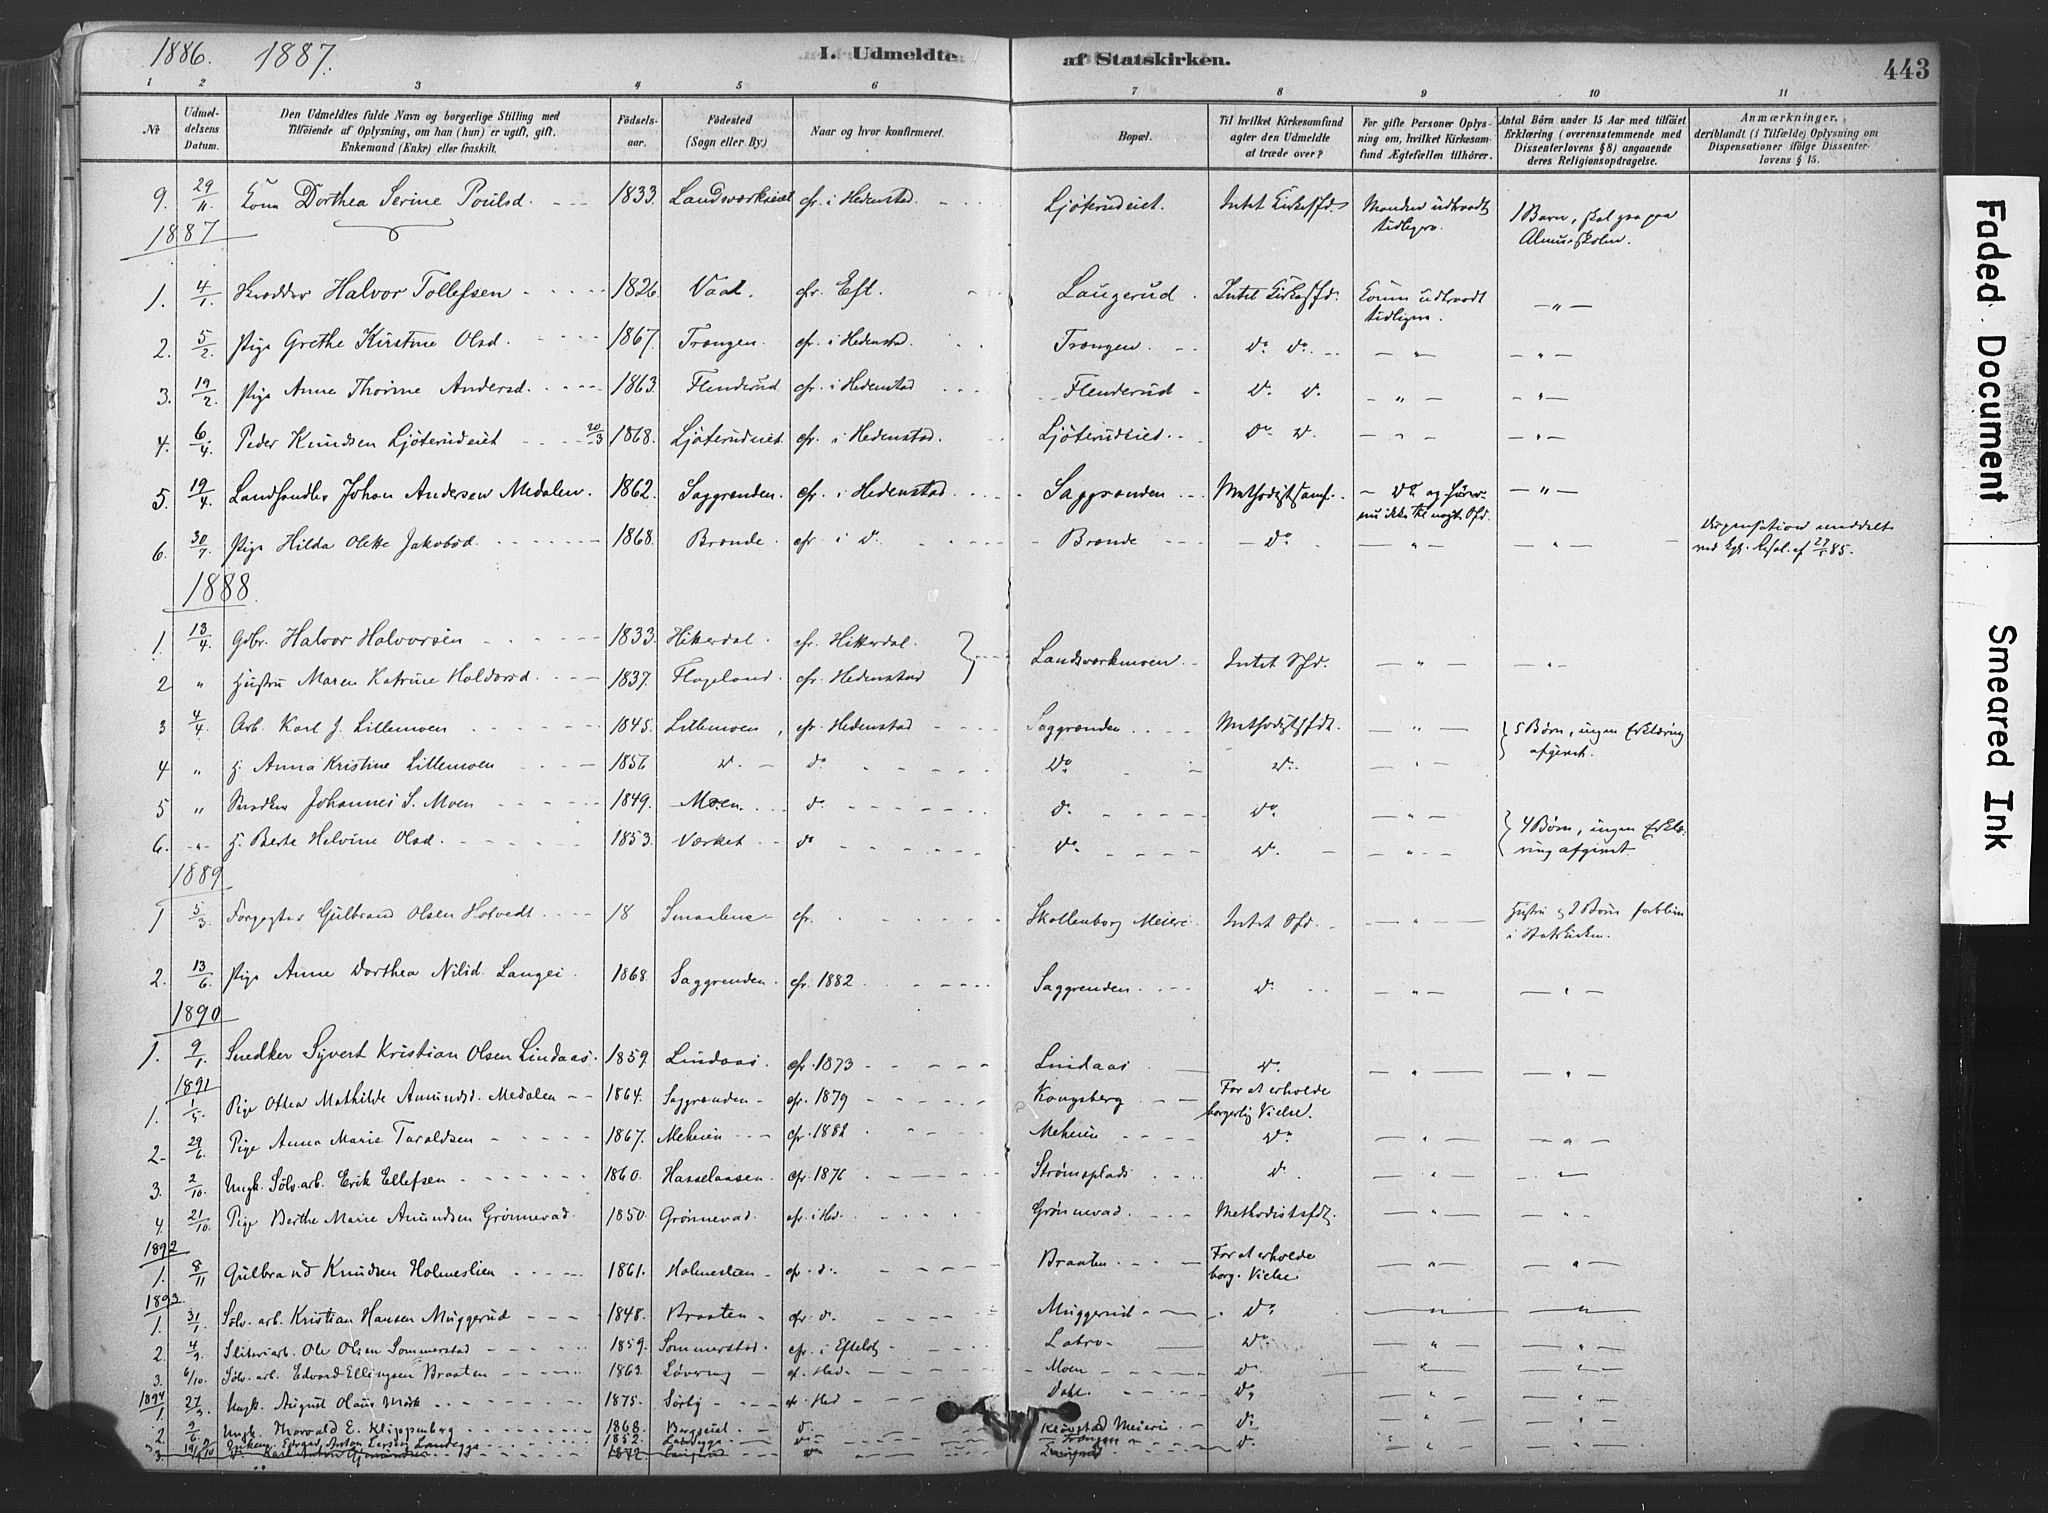 1886. 1887. I. Udmeldte af Statskirken. 443
1 2 3 4 5 6 7 8 9 10 11
№ Udmeldelsens Datum. Den Udmeldtes fulde Navn og borgerlige Stilling med Tilföiende af Oplysning, om han (hun) er ugift, gift, Enkemand (Enke) eller fraskilt. Födselsaar. Födested (Sogn eller By) Naar og hvor konfirmeret. Bopæl. Til hvilket Kirkesamfund agter den Udmeldte at træde over? For gifte Personer Oplysning om, hvilket Kirkesamfund Ægtefællen tilhörer. Antal Börn under 15 Aar med tilföiet Erklæring (overensstemmende med Dissenterlovens § 8) angaaende deres Religionsopdragelse. Anmærkninger, deriblandt (i Tilfælde) Oplysning om Dispensationer ifölge Dissenterlovens § 15.
9. 29/11. Kona Dorthea Serine Poulsd. 1833. Landsværkseiet cfr. i Hedenstad Ljöterudeiet. Intet Kirkesfd. Manden udtraadt tidligere. 1 Barn, skal gaa paa Almueskolen.
1887
1. 4/1. Skrædder Halvor Tollefsen 1826. Vaal. cfr. Eft. Laugerud. Intet Kirkesfd. Konen udtraadt tidligere. — " —
2. 5/2. Pige Grethe Kirstine Olsd. 1867. Trangen. cfr. i Hedenstad. Trangen. do. do. — " — — " —
3. 19/2. Pige Anne Thorine Andersd. 1863. Flenderud cfr. i Hedenstad Flenderud do. do. — " — — " —
4. 6/4. Peder Knudsen Ljöterudeiet 20/3 1868. Ljöterudeiet cfr. i Hedenstad. Ljöterudeiet. do. do. — " — — " —
5. 19/4. Landhandler Johan Andersen Medalen. 1862. Saggrenden. cfr. i Hedenstad Saggrenden Methodistsamf. — do. og hörer nu ikke til noget Sfd. — " —
6. 30/7. Pige Hilda Olette Jakobsd. 1868. Brande. cfr. i do. Brande — do. — " — — " — Dispensation meddelt ved Kgl. Resol. af 27/1 85.
1888.
1. 13/4. Gdbr. Halvor Halvorsen 1833. Hitterdal. cfr. Hitterdal. Landsværkmoen Intet Sfd. — " — — " —
2 " Hustru Maren Katrine Haldorsd. 1837. Flageland. cfr. Hedenstad
3 4/4. Arb. Karl J. Lillemoen 1845. Lillemoen, cfr. Hedenstad Saggrenden Methodistsfdt. — " — 5 Börn, ingen Erklæring afgivet.
4 " H. Anna Kristine Lillemoen 1856 do. do. do. do. — " —
5 " Snedker Johannes S. Moen 1849. Moen. do. do. do. — " —
6. " H. Berte Helvine Olsd. 1853. Værket do. do. do. — " — 4 Börn, ingen Erklæring afgivet
1889
1 5/3. Forpagter Gulbrand Olsen Hotvedt 18 Smaalene cfr. Skollenborg Meieri Intet Sfd. — " — Hustru og 2 Börn forbliver i Statskirken.
2. 13/6. Pige Anne Dorthea Nilsd. Langei. 1868. Saggrenden. cfr. 1882 Saggrenden. do. — " — — " —
1890
1. 9/1. Snedker Syvert Kristian Olsen Lindaas. 1859. Lindaas cfr. 1873 Lindaas do. — " — — " —
1891
1. 1/5. Pige Othea Mathilde Amundsd. Medalen 1864. Saggrenden cfr. 1879 Kongsberg For at erholde borgerlig Vielse.
2. 29/6. Pige Anna Marie Taraldsen 1867. Meheien cfr. 1882 Meheien do. — " — — " —
3. 2/10. Ungk. Sölv.arb. Erik Ellefsen 1860. Hasselaasen. cfr. 1876 Strömsplads do. — " — — " —
4. 21/10. Pige Berthe Marie Amundsen Grönnevad. 1850. Grönnevad. cfr. i Hed. Grönnevad. Methodistsfdt. — " — — " —
1892
1. 8/11 Gulbrand Knudsen Holmeslien 1861. Holmeslien cfr. do. Braaten For at erholde borg. Vielse — " — — " —
1893
1. 31/1. Sölv. arb. Kristian Hansen Muggerud 1848. Braaten cfr. do. Muggerud do. — " — — " —
2. 4/9. Sliberiarb. Ole Olsen Sommerstad 1859. Sommerstad. cfr. i Efteløt Labro do. — " — — " —
3. 6/10. Sölv. arb. Edvard Ellingsen Braaten 1863. Lövring cf. Hed. Moen do. — " — — " —
1894
1. 27/3. Ungk. August Olaus Mörk 1875. Sörby cfr. Hed Dahl. do. — " — — " —
2. 9/6. Ungk. Thorvald E. Klippenberg 1868. do. Klövstad Meieri do. — " — — " —
3. Anton Larsen Landegga 1852. do. Trangen do. — " — — " —
1872.
Faded Document
Smeared Ink